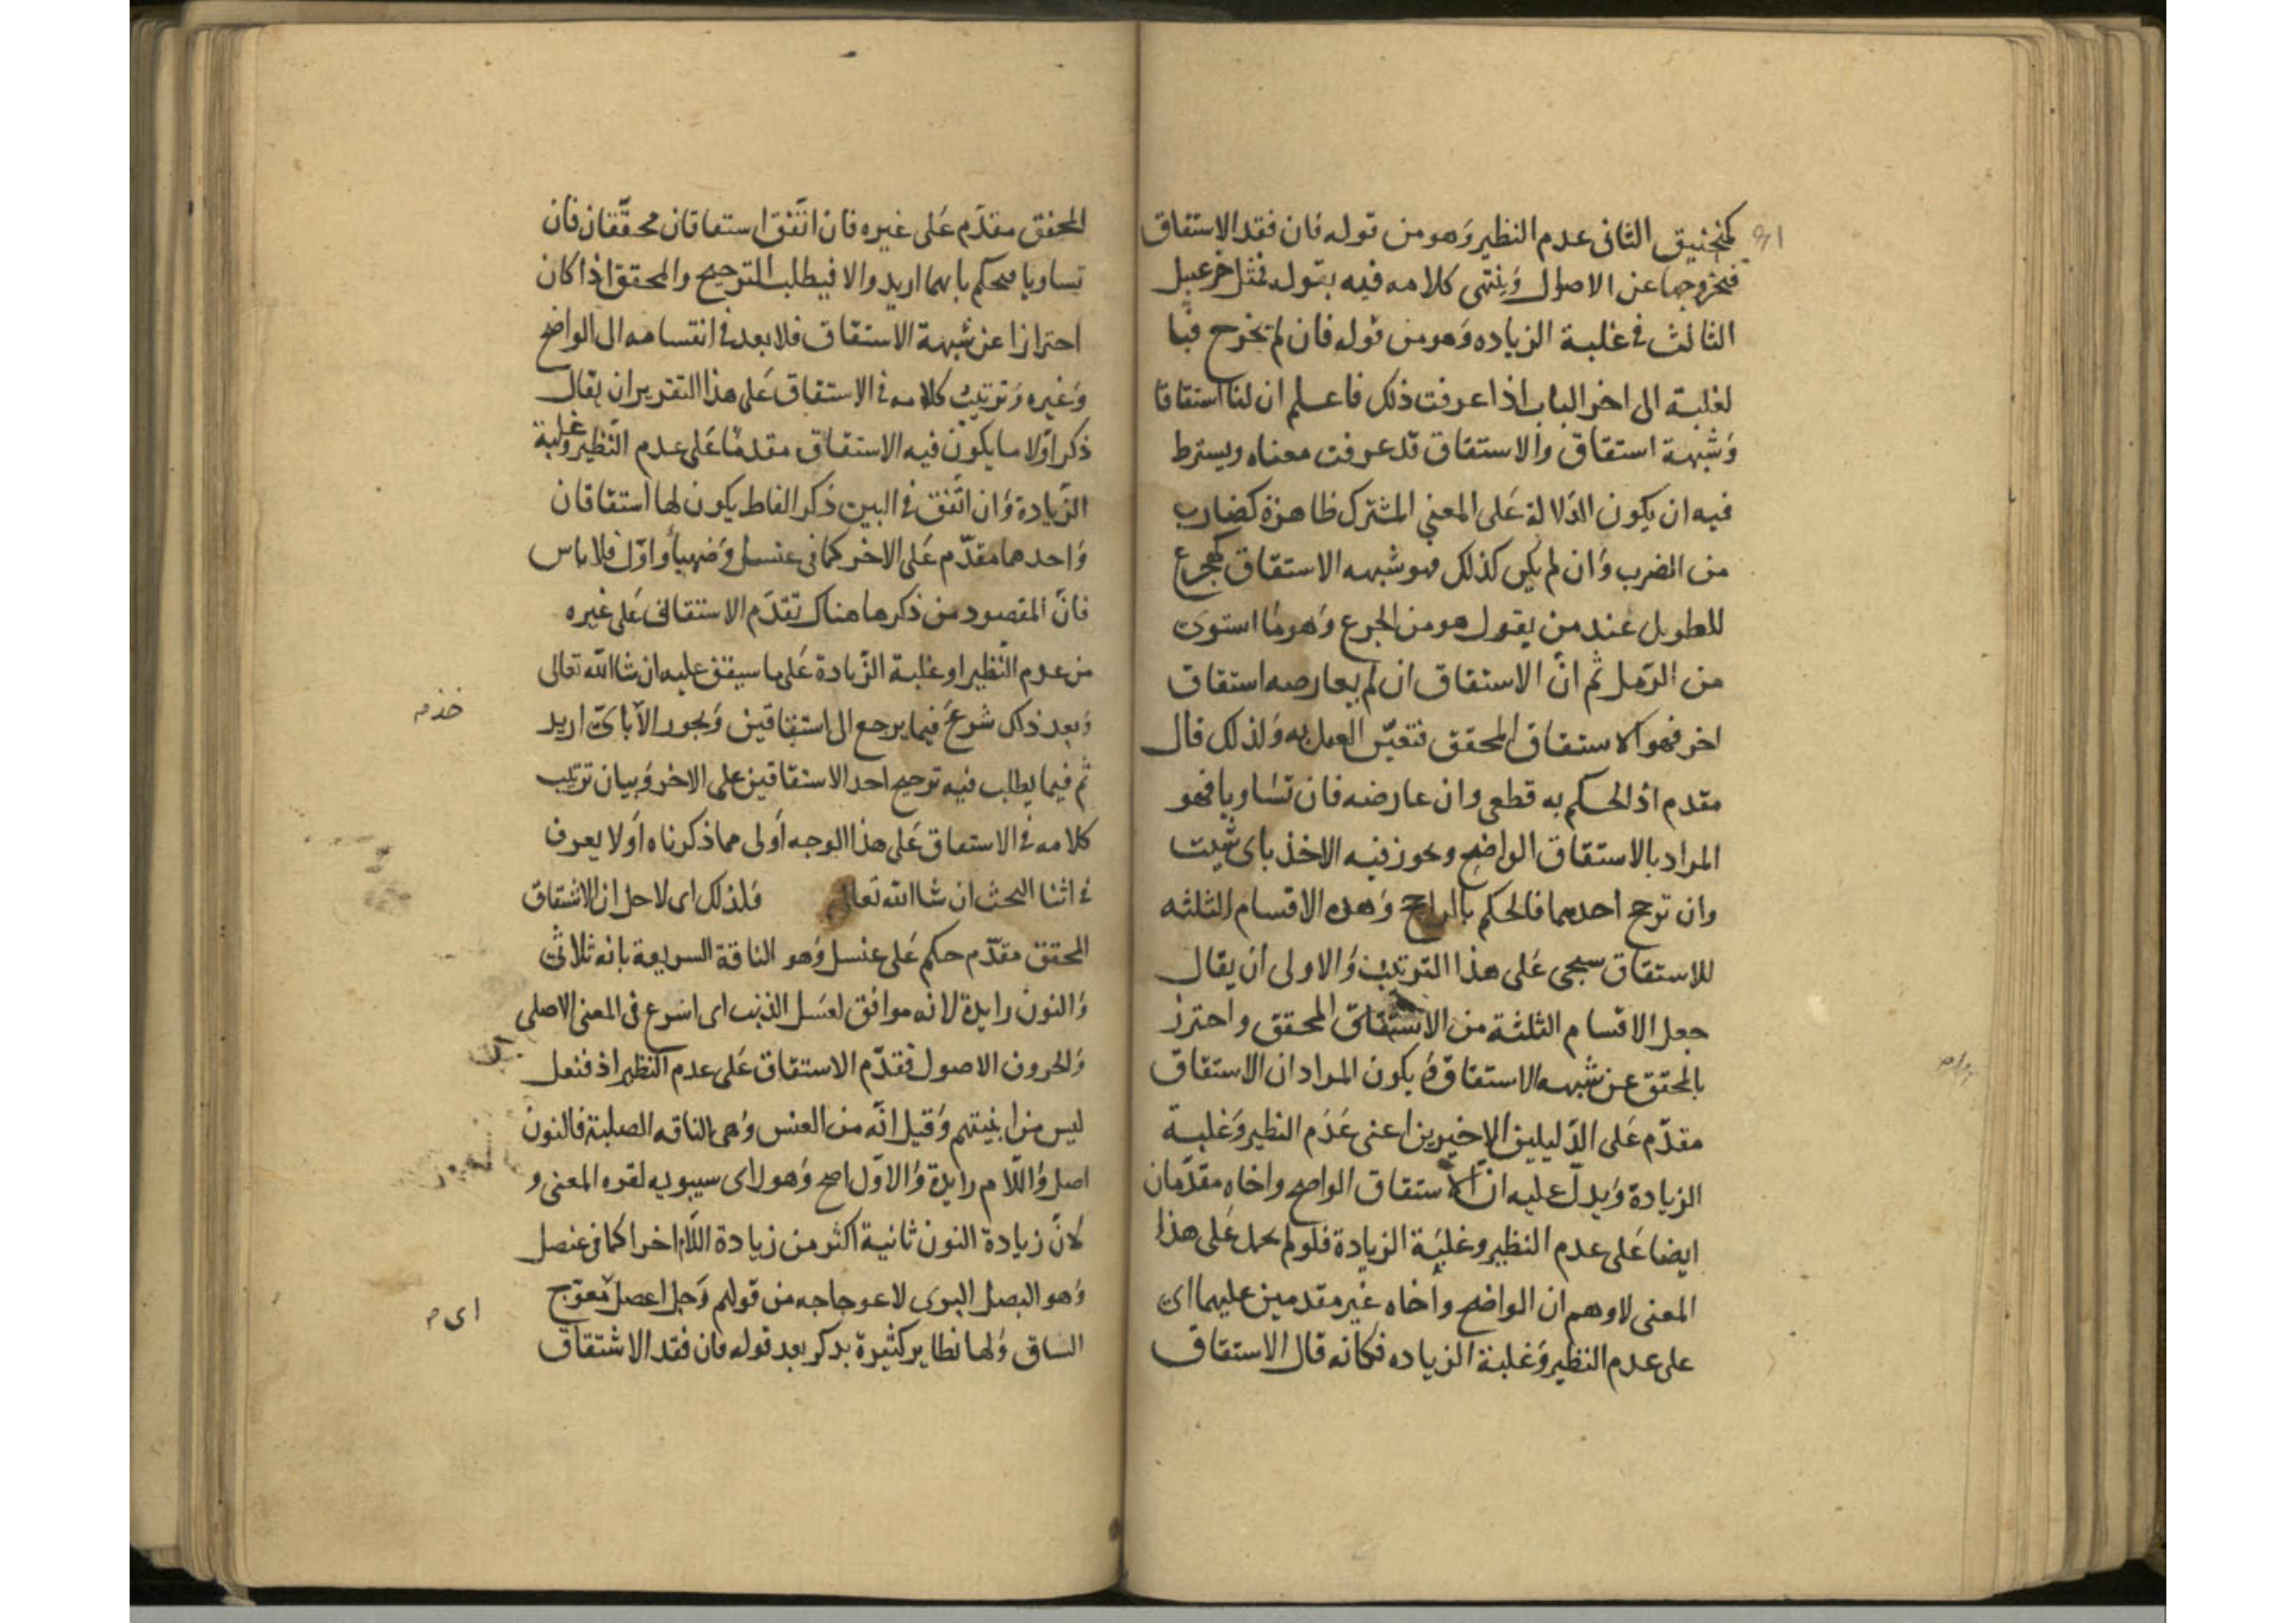 كمنجنيق الثانى عدم النظير وَهو من قوله فان فقد الاستقاق
فبخروجها عن الاصول وَينتهى كلامه فيه بقوله فمثل خزعبيل
الثالث فى غلبة الزياده وَهو من قوله فان لم تخرج فبا
لغلبة الى اخر الباب اذا عرفت ذلك فاعلم ان لنا استقاقا
وَشبهة استقاق والاستقاق قد عرفت معناه ويسترط
فيه ان يكون الدّلالة عَلى المعنى المشترك ظاهرة كضارب
من الضرب وَان لم يكن كذلك فهو شبهه الاستقاق كهجرع
للطويل عند من يقول هو من الجرع وَهو ما استوى
من الرّمل ثم انّ الاستقاق ان لم يعارضه استقاق
اخر فهو الاستقاق المحقق فتعيّن العمل به وَلذلك قال
مقدم اذ الحكم به قطعى وان عارضه فان تساويا فهو
المراد بالاستقاق الواضح ويجوز فيه الاخذ باى شيت
وان ترجح احدهما فالحكم بالراجح وَهده الاقسام الثلثه
للاستقاق سيجى عَلى هذا الترتيب وَالاولى ان يقال
جعل الاقسام الثلثة من الاستقاق المحقق واحترز
بالمحقق عن شبهه الاستقاق وَيكون المراد ان الاستقاق
مقدّم عَلى الدّليلين الاخيرين اعنى عَدَم النظير وَغلبة
الزيادة وَيدلّ عليه انّ الاستقاق الواضح واخاه مقدّمان
ايضا عَلى عدم النظير وغلبَة الزيادة فلو لم يحمل عَلى هذا
المعنى لاوهم ان الواضح وأخاه غير مقدمين عليهما اى
على عدم النظير وَغلبة الزياده فكانه قال الاستقاق
المحقق مقدّم عَلى غيره فان اتّفق استقاقان محقّقان فان
تساويا يحكم بايهما اريد والا فيطلب الترجيح والمحقق اذا كان
احترازا عن شبهة الاستقاق فلا بعد فى انقسامه الى الواضح
وَغيره وَترتيب كلامه فى الاستقاق عَلى هذا التقرير ان يقال
ذكر اوّلا ما يكون فيه الاستقاق مقدمًا عَلى عدم النّظير وغلبة
الزّيادة وَان اتّفق فى البين ذكر الفاظ يكون لها استقاقان
وَاحدهما مقدّم عَلى الاخر كما فى عنسل وَضهيأ واوّل فلا باس
فانّ المقصود من ذكرها هناك تقدّم الاستقاق عَلى غيره
من عدم النّظير او غلبة الزّيادة عَلى ما سيقف عليه ان شا الله تعالى
وَبعد ذلك شرعَ فيما يرجع الى استقاقين وَيجوز الاخذ باىّ اريد
ثم فيما يطلب فيه ترجيح احد الاستقاقين على الاخر وَبيان ترتيب
كلامه فى الاستقاق عَلى هذا الوجه أولى مما ذكرناه اوّلا يعرف
فى اثنا البحث ان شا الله تعالى فلذلك اى لاجل ان الاشتقاق
المحقق مقدّم حكم عَلى عنسل وَهو الناقة السريعة بانه ثلاثى
وَالنون زايدة لانه موافق لعسَل الذيب اى اسرع فى المعنى الاصلى
وَالحروف الاصول فقدّم الاستقاق عَلى عدم النظير اذ فنعل
ليس من ابنيتهم وَقيل انّه من العنس وَهى الناقه الصلبة فالنون
اصل وَاللّام زايدة وَالاوّل اصح وَهو راى سيبويه لقوه المعنى و
لانّ زيادة النون ثانية اكثر من زيادة اللّام اخرا كما فى عنصل
وَهو البصل البرى لاعوجاجه من قولهم رَجل اعصل معوّج
السّاق وَلها نظاير كثيرة يدكر بعد قوله فان فقد الاشتقاق
اى م